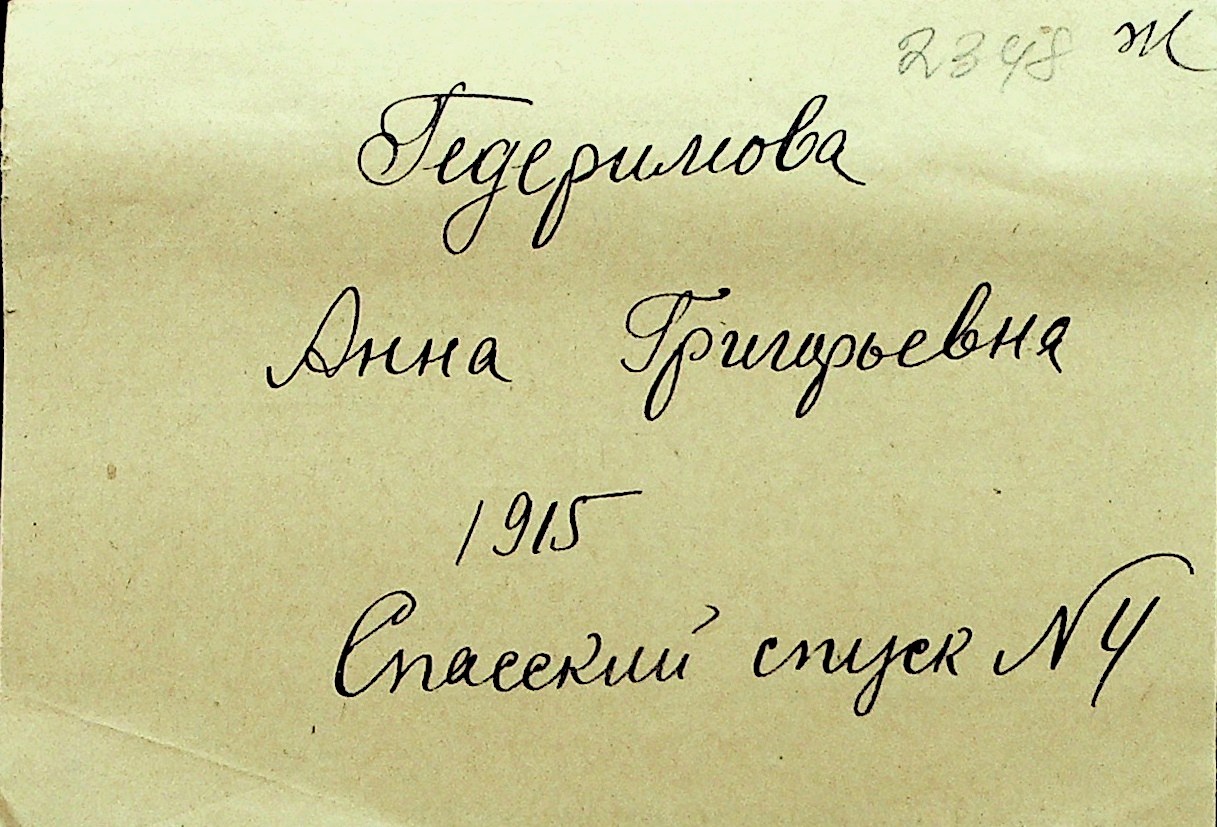 2348 Ж
Гедеримова
Анна Григорьевна
1915
Спасский спуск N 4